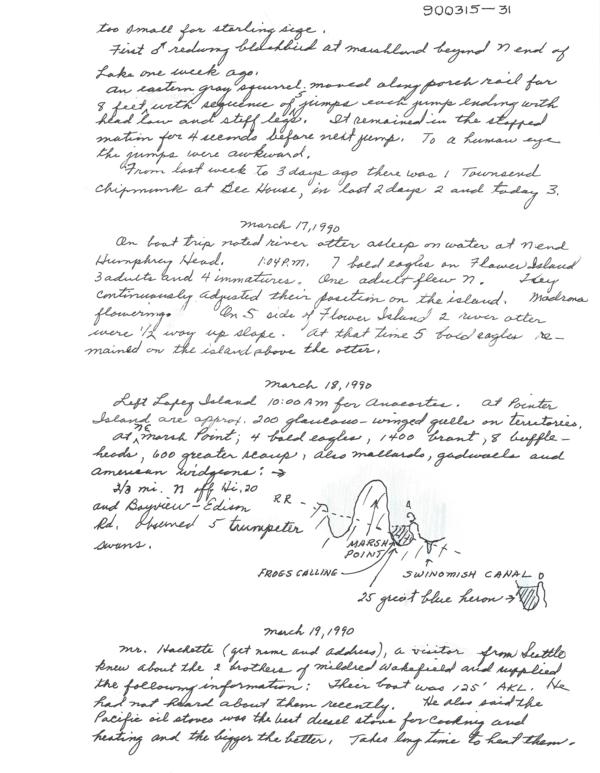 900315-31
too small for starling size.
First ♂ redwing blackbird at marshland beyond N end of
Lake one week ago.
An eastern gray squirrel moved along porch rail for
8 feet with sequence of 5 jumps each jump ending with
head low and stiff legs. It remained in the stopped
motion for 4 seconds before next jump. To a human eye
the jumps were awkward.
From last week to 3 days ago there was 1 Townsend
Chipmunk at Bee House, in last 2 days 2 and today 3.
March 17, 1990
On boat trip noted river otter asleep on water at N end
Humphrey Head. 1:04 P.M. 7 bald eagles on Flower Island
3 adults and 4 immatures. One adult flew N. They
continuously adjusted their position on the island. Madrona
flowering. On S side of Flower Island 2 river otter
were 1/2 way up slope. At that time 5 bald eagles re-
mained on the island above the otter.
March 18, 1990
Left Lopez Island 10:00 AM for Anacortes. At Pointer
Island are approx. 200 glaucous-winged gulls on territories.
At NE Marsh Point; 4 bald eagles, 1400 brant, 8 buffle-
heads, 600 greater scaup, also mallards, gadwalls and
American widgeons: →
2/3 mi. N off Hi. 20
and Bayview-Edison
Rd. observed 5 trumpeter
swans.
RR
MARSH
POINT
FROGS CALLING
SWINOMISH CANAL
25 great blue heron →
March 19, 1990
Mr. Hackette (get name and address), a visitor from Seattle
knew about the 2 brothers of Mildred Wakefield and supplied
the following information: Their boat was 125' AKL. He
had not heard about them recently. He also said the
Pacific oil stoves was the best diesel stove for cooking and
heating and the bigger the better. Takes long time to heat them.